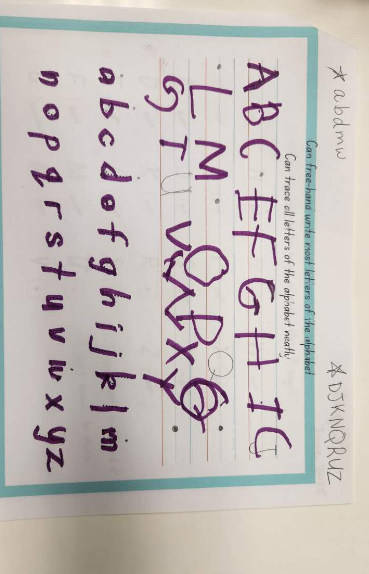 * abdmw * DJKNQRUZ
Can free-hand write most letters of the alphabet
Can trace all letters of the alphabet neatly
A B C E F G H I
L M O P Q
S T U V W X Y
a b c d e f g h i j k l m
n o p q r s t u v w x y z